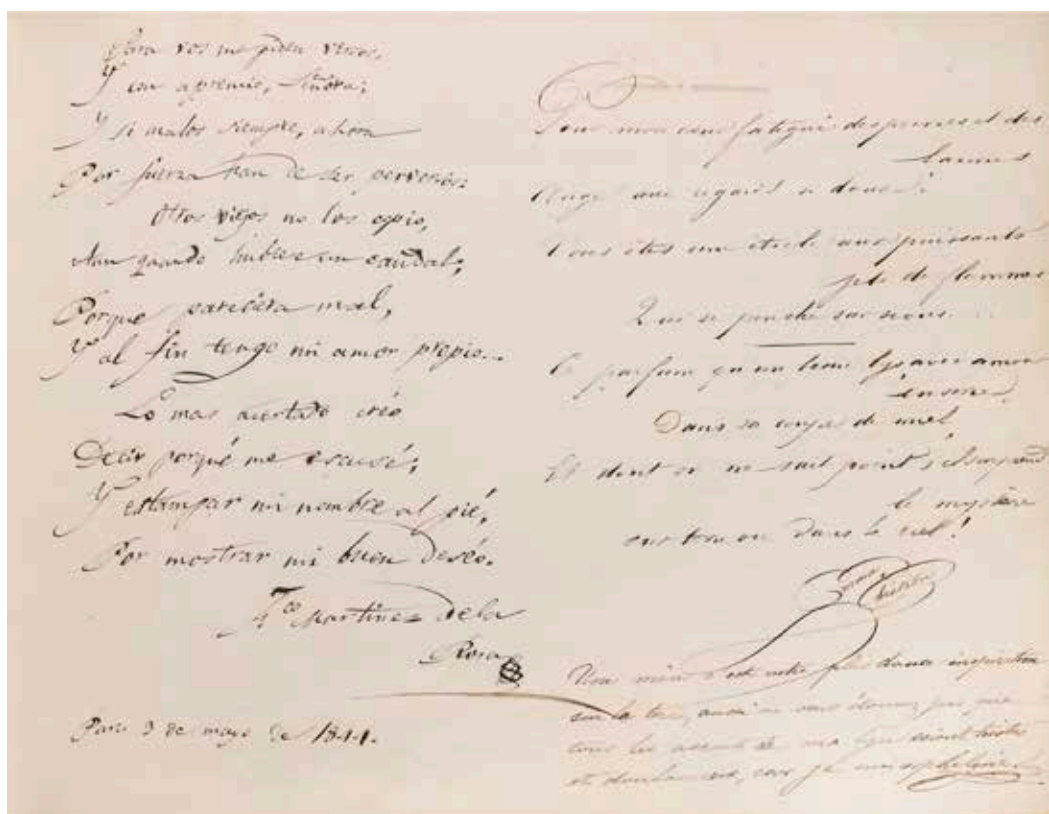 Para vos me piden versos,
Y con apremio, Señora;
Y si malos siempre, ahora
Por fuerza han de ser perversos:
Otros viejos no los copio,
Aun quando hubiese un caudal;
Porque pareciera mal,
Y al fin tengo mi amor propio...
Lo mas acertado créo
Decir porqué me escusé;
Y estampar mi nombre al pié,
Por mostrar mi buen deséo.
Fco Martinez dela
Rosa
Paris 3 de mayo de 1844.
Pour mon cœur fatigué des peines et des
larmes
Ange aux regards si doux!
Vous êtes une étoile aux puissants
jets de flammes
Qui se penche sur nous
Le parfum qu'un beau lys avec amour
enserre
Dans sa coupe de miel
Et dont on ne sait point
le mystère
dans le ciel!
Une mère est notre plus douce inspiration
sur la terre, aussi ne vous étonnez pas, que
tous les accents de ma lyre soient tristes
et douloureux, car je suis orpheline!